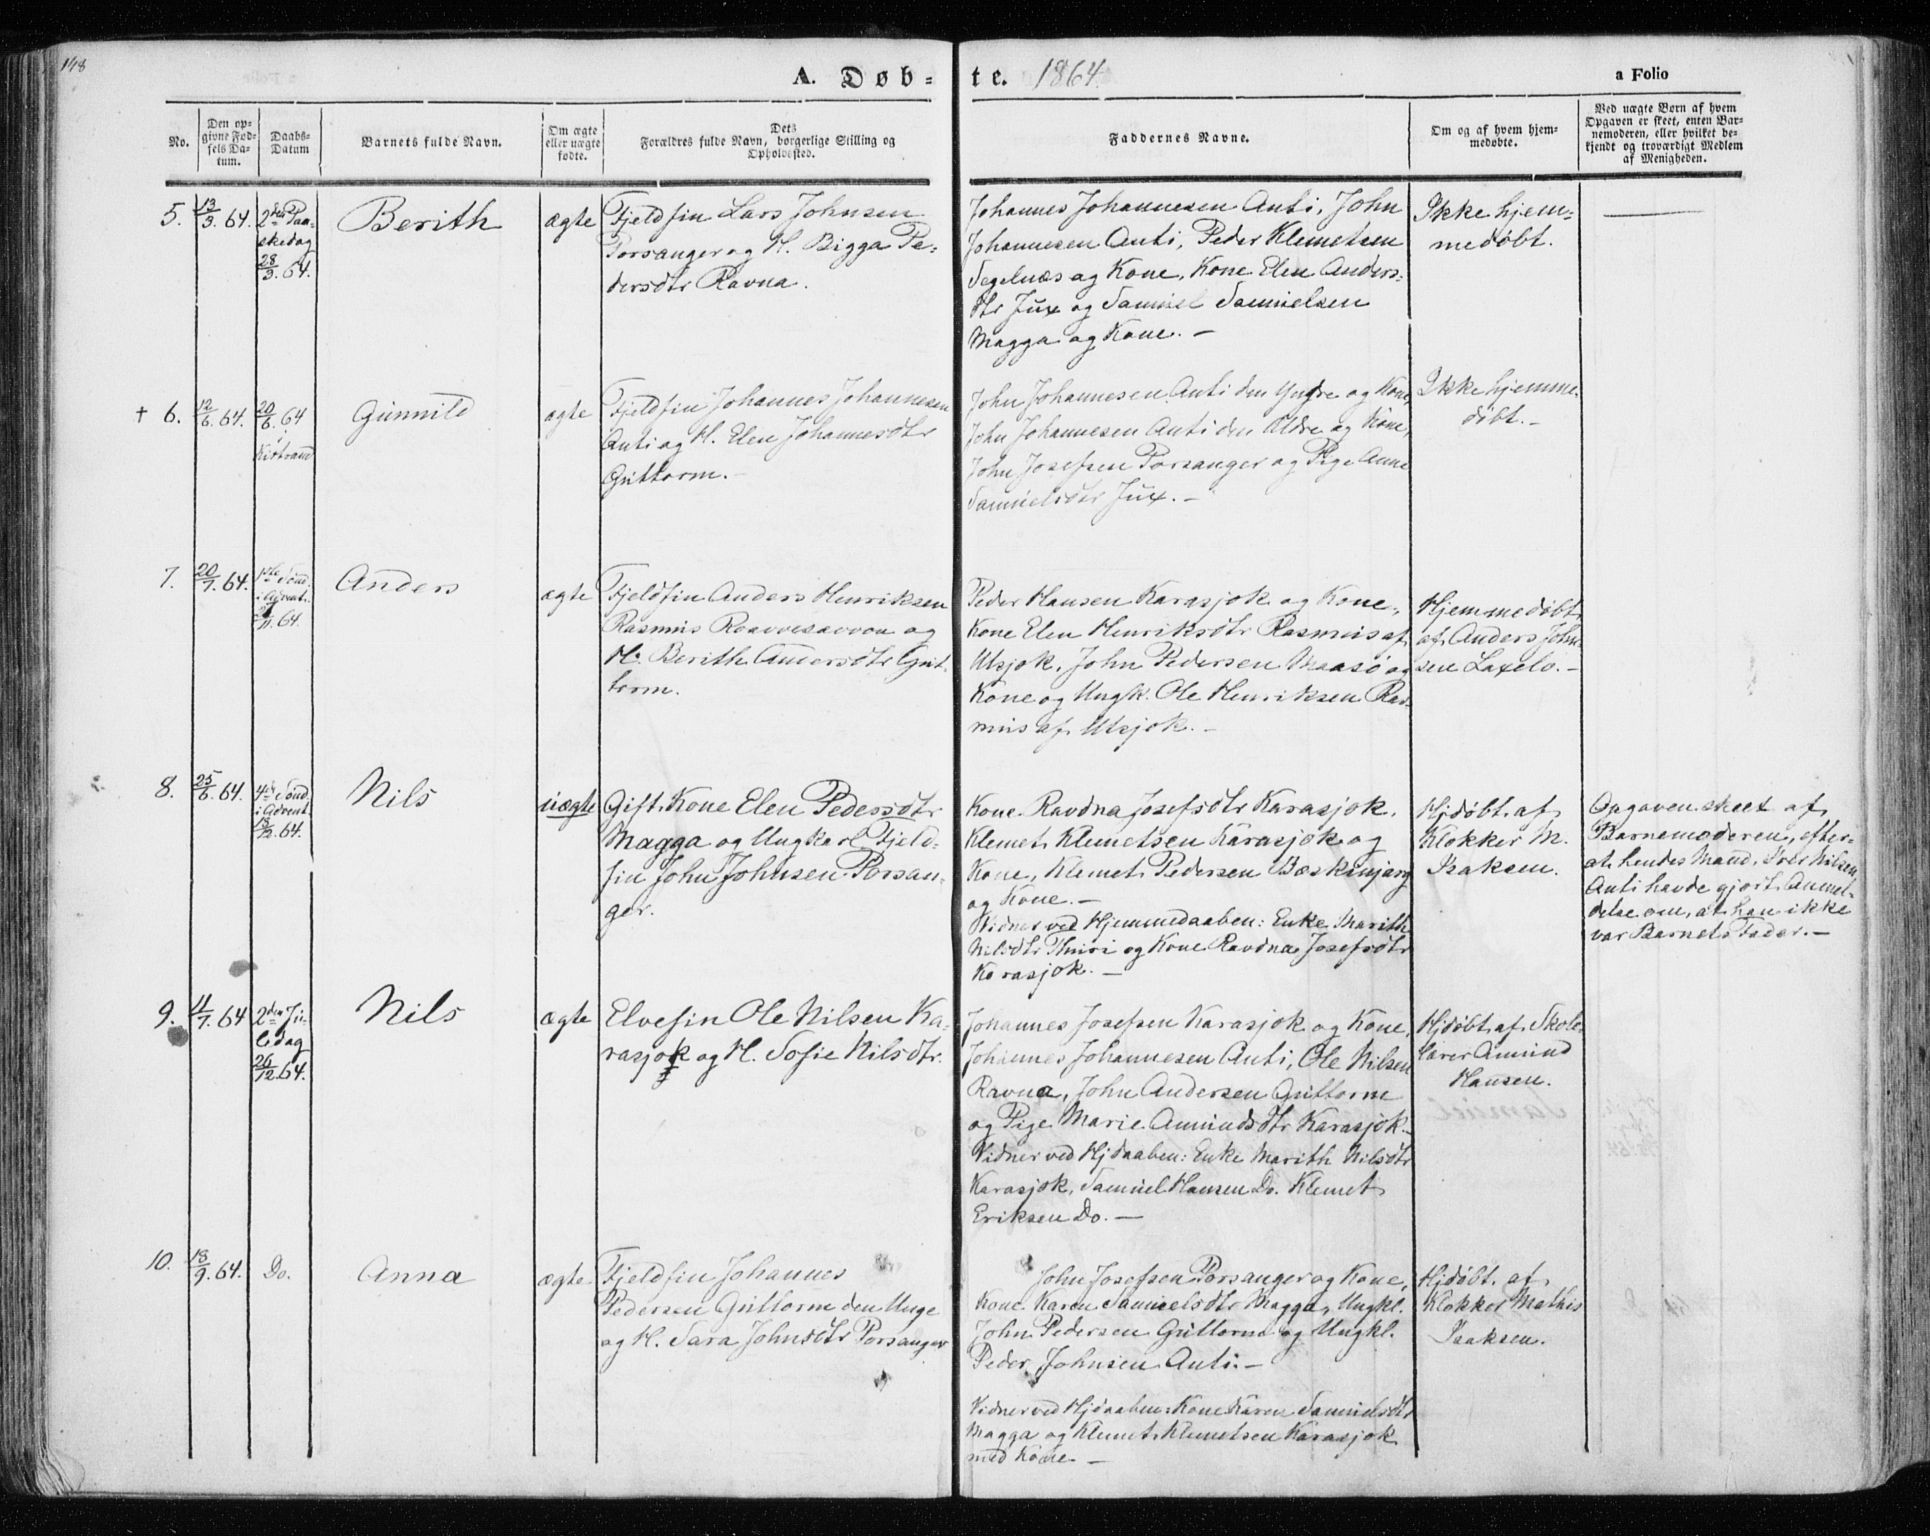 148
A. Døb-
te. 1864.
a Folio
No.
Den op-
givne Fød-
sels Da-
tum.
Daabs-
Datum
Barnets fulde Navn.
Om ægte
eller uægte
fødte.
Dets
Forældres fulde Navn, borgerlige Stilling og
Opholdssted.
Faddernes Navne.
Om og af hvem hjem-
medøbte.
Ved uægte Børn af hvem
Opgaven er skeet, enten Bar-
nemoderen, eller hvilket be-
kjendt og troværdigt Medlem
af Menigheden.
5.
13/3. 64.
2den Paa-
skedag
28/3. 64.
Berith
ægte
Fjeldfin Lars Johnsen
Porsanger og H. Bigga Pe-
dersdtr Ravna.
Johannes Johannesen Anti, John
Johannesen Anti, Peder Klemetsen
Segelnæs og Kone, Kone Elen Anders-
dtr Jux og Samuel Samuelsen
Magga og Kone. —
Ikke hjem-
medøbt.
—
+ 6.
12/6. 64.
20/6. 64
Kistrand
Gunnild
ægte
Fjeldfin Johannes Johannesen
Anti og H. Elen Johannesdtr
Guttorm. -
John Johannesen Anti den Yngre og Kone,
John Johannesen Anti den Ældre og Kone,
John Josefsen Porsanger og Pige Anne
Samuelsdtr Jux. -
Ikke hjemme-
døbt. -
7.
20/7. 64.
1ste Sønd.
i Advent.
/11. 64.
Anders
ægte
Fjeldfin Anders Henriksen
Rasmus Roavvesavvon og
H. Berith Andersdtr Gut-
torm.
Peder Hansen Karasjok og Kone,
Kone Elen Henriksdtr Rasmus af
Utsjok, John Pedersen Maasø og
Kone og Ungk. Ole Henriksen Ras-
mus af Utsjok. -
Hjemmedøbt
af Anders John-
sen Laxelv. -
8.
25/6. 64.
4de Sønd.
i Advent
18/12. 64.
Nils
uægte
Gift Kone Elen Pedersdtr
Magga og Ungkarl Fjeld-
fin John Johnsen Porsan-
ger.
Kone Ravdna Josefsdtr Karasjok,
Klemet Klemetsen Karasjok og
Kone, Klemet Pedersen Bæskinjarg
og Kone. -
Vidner ved Hjemmedaaben: Enke Marith
Nilsdtr Thuri og Kone Ravdna Josefsdtr
Karasjok. —
Hjdøbt af
Klokker M.
Isaksen.
Opgaven skeet af
Barnemoderen, efter-
at hendes Mand, Nilsen
Anti havde gjort Anmel-
delse om, at han ikke
var Barnets Fader. -
9.
11/7. 64
2den Ju-
ledag
26/12. 64.
Nils
ægte
Elvefin Ole Nilsen Ka-
rasjok og H. Sofie Nilsdtr.
Johannes Josefsen Karasjok og Kone,
Johannes Johannesen Anti, Ole Nilsen
Ravna, John Andersen Guttorm
og Pige Marie Amundsdtr Karasjok. -
Vidner ved Hjdaaben: Enke Marith Nilsdtr
Karasjok, Samuel Hansen Do. Klemet
Eriksen Do. —
Hjdøbt af Skole-
lærer Amund
Hansen.
10.
18/9. 64.
Do.
Anna
ægte
Fjeldfin Johannes
Pedersen Guttorm den Unge
og H. Sara Johnsdtr Porsanger
John Josefsen Porsanger og Kone,
Kone Karen Samuelsdtr Magga, Ungkl.
John Pedersen Guttorm og Ungkl.
Peder Johnsen Anti. -
Vidner ved Hjdaaben: Kone Karen Samuelsdtr
Magga og Klemet Klemetsen Karasjok
med Kone. —
Hjdøbt af
Klokker Mathis
Isaksen.